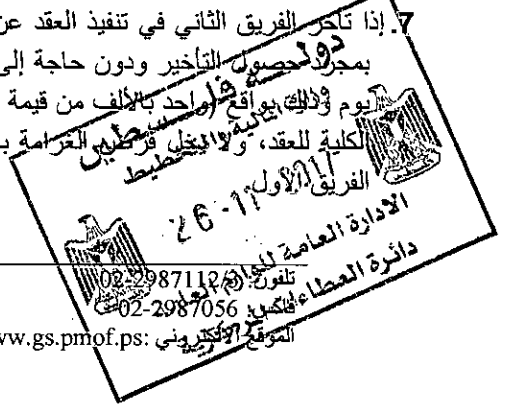 7. إذا تأخر الفريق الثاني في تنفيذ العقد عن
بمجرد حصول التأخير ودون حاجة إلى
يوم وذلك بواقع (واحد بالألف من قيمة
الكلية للعقد، ولا يخل فرض الغرامة ب
الفريق الأول
دولة فلسطين
وزارة المالية والتخطيط
الادارة العامة للوازم العامة
دائرة العطاءات المركزية
تلفون: 02-2987112/3
فاكس: 02-2987056
الموقع الالكتروني: ww.gs.pmof.ps